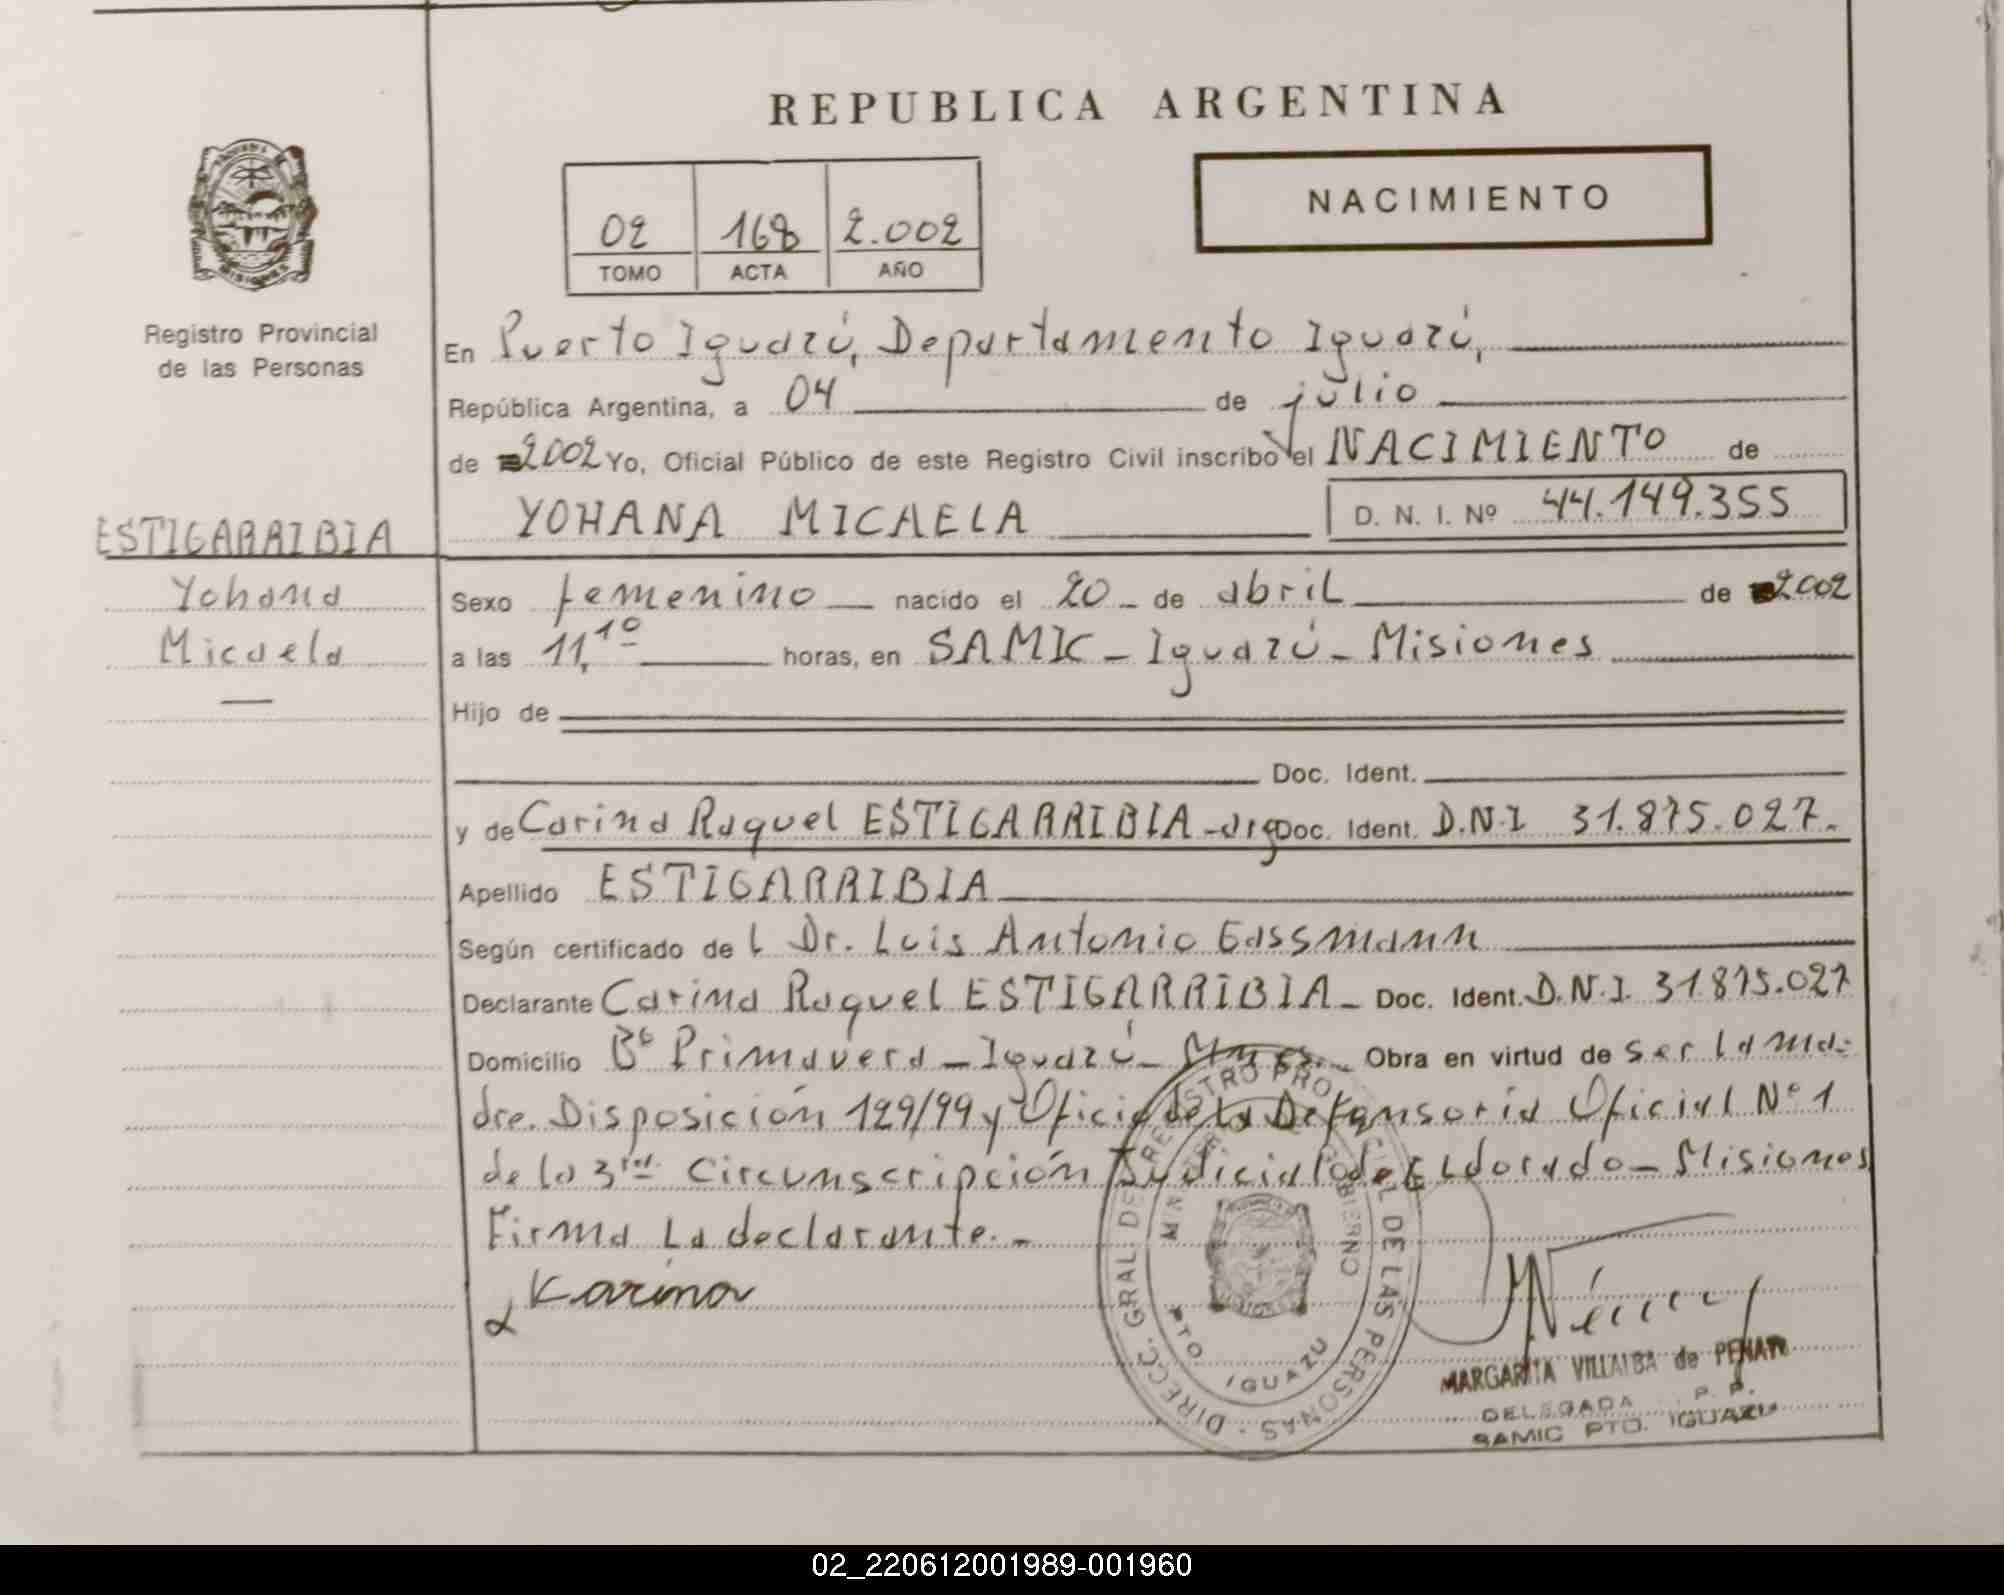 REPUBLICA ARGENTINA
NACIMIENTO
02 168 2.002
TOMO ACTA AÑO
Registro Provincial
de las Personas
En Puerto Iguazú, Departamento Iguazú,
República Argentina, a 04 de julio
de 2002 Yo, Oficial Público de este Registro Civil inscribo el NACIMIENTO de
YOHANA MICAELA D. N. I. Nº 44.149.355
ESTIGARRIBIA
Yohana
Micaela
Sexo femenino nacido el 20 de abril de 2002
a las 11,10 horas, en SAMIC - Iguazú - Misiones
Hijo de
Doc. Ident.
y de Carina Raquel ESTIGARRIBIA - arg Doc. Ident. D.N.I 31.875.027.
Apellido ESTIGARRIBIA
Según certificado de l Dr. Luis Antonio Gassmann
Declarante Carina Raquel ESTIGARRIBIA - Doc. Ident. D.N.I. 31.875.027
Domicilio Bº Primavera - Iguazú - Mnes. Obra en virtud de ser la ma-
dre. Disposición 129/99 y Oficio de la Defensoría Oficial Nº 1
de la 3ra. Circunscripción Judicial de Eldorado - Misiones
Firma La declarante. -
Karina
DIRECC. GRAL. DE REGISTRO PROVINCIAL DE LAS PERSONAS
GOBIERNO
PTO. IGUAZU
MARGARITA VILLALBA de
DELEGADA P. P.
SAMIC PTO. IGUAZU
02_220612001989-001960